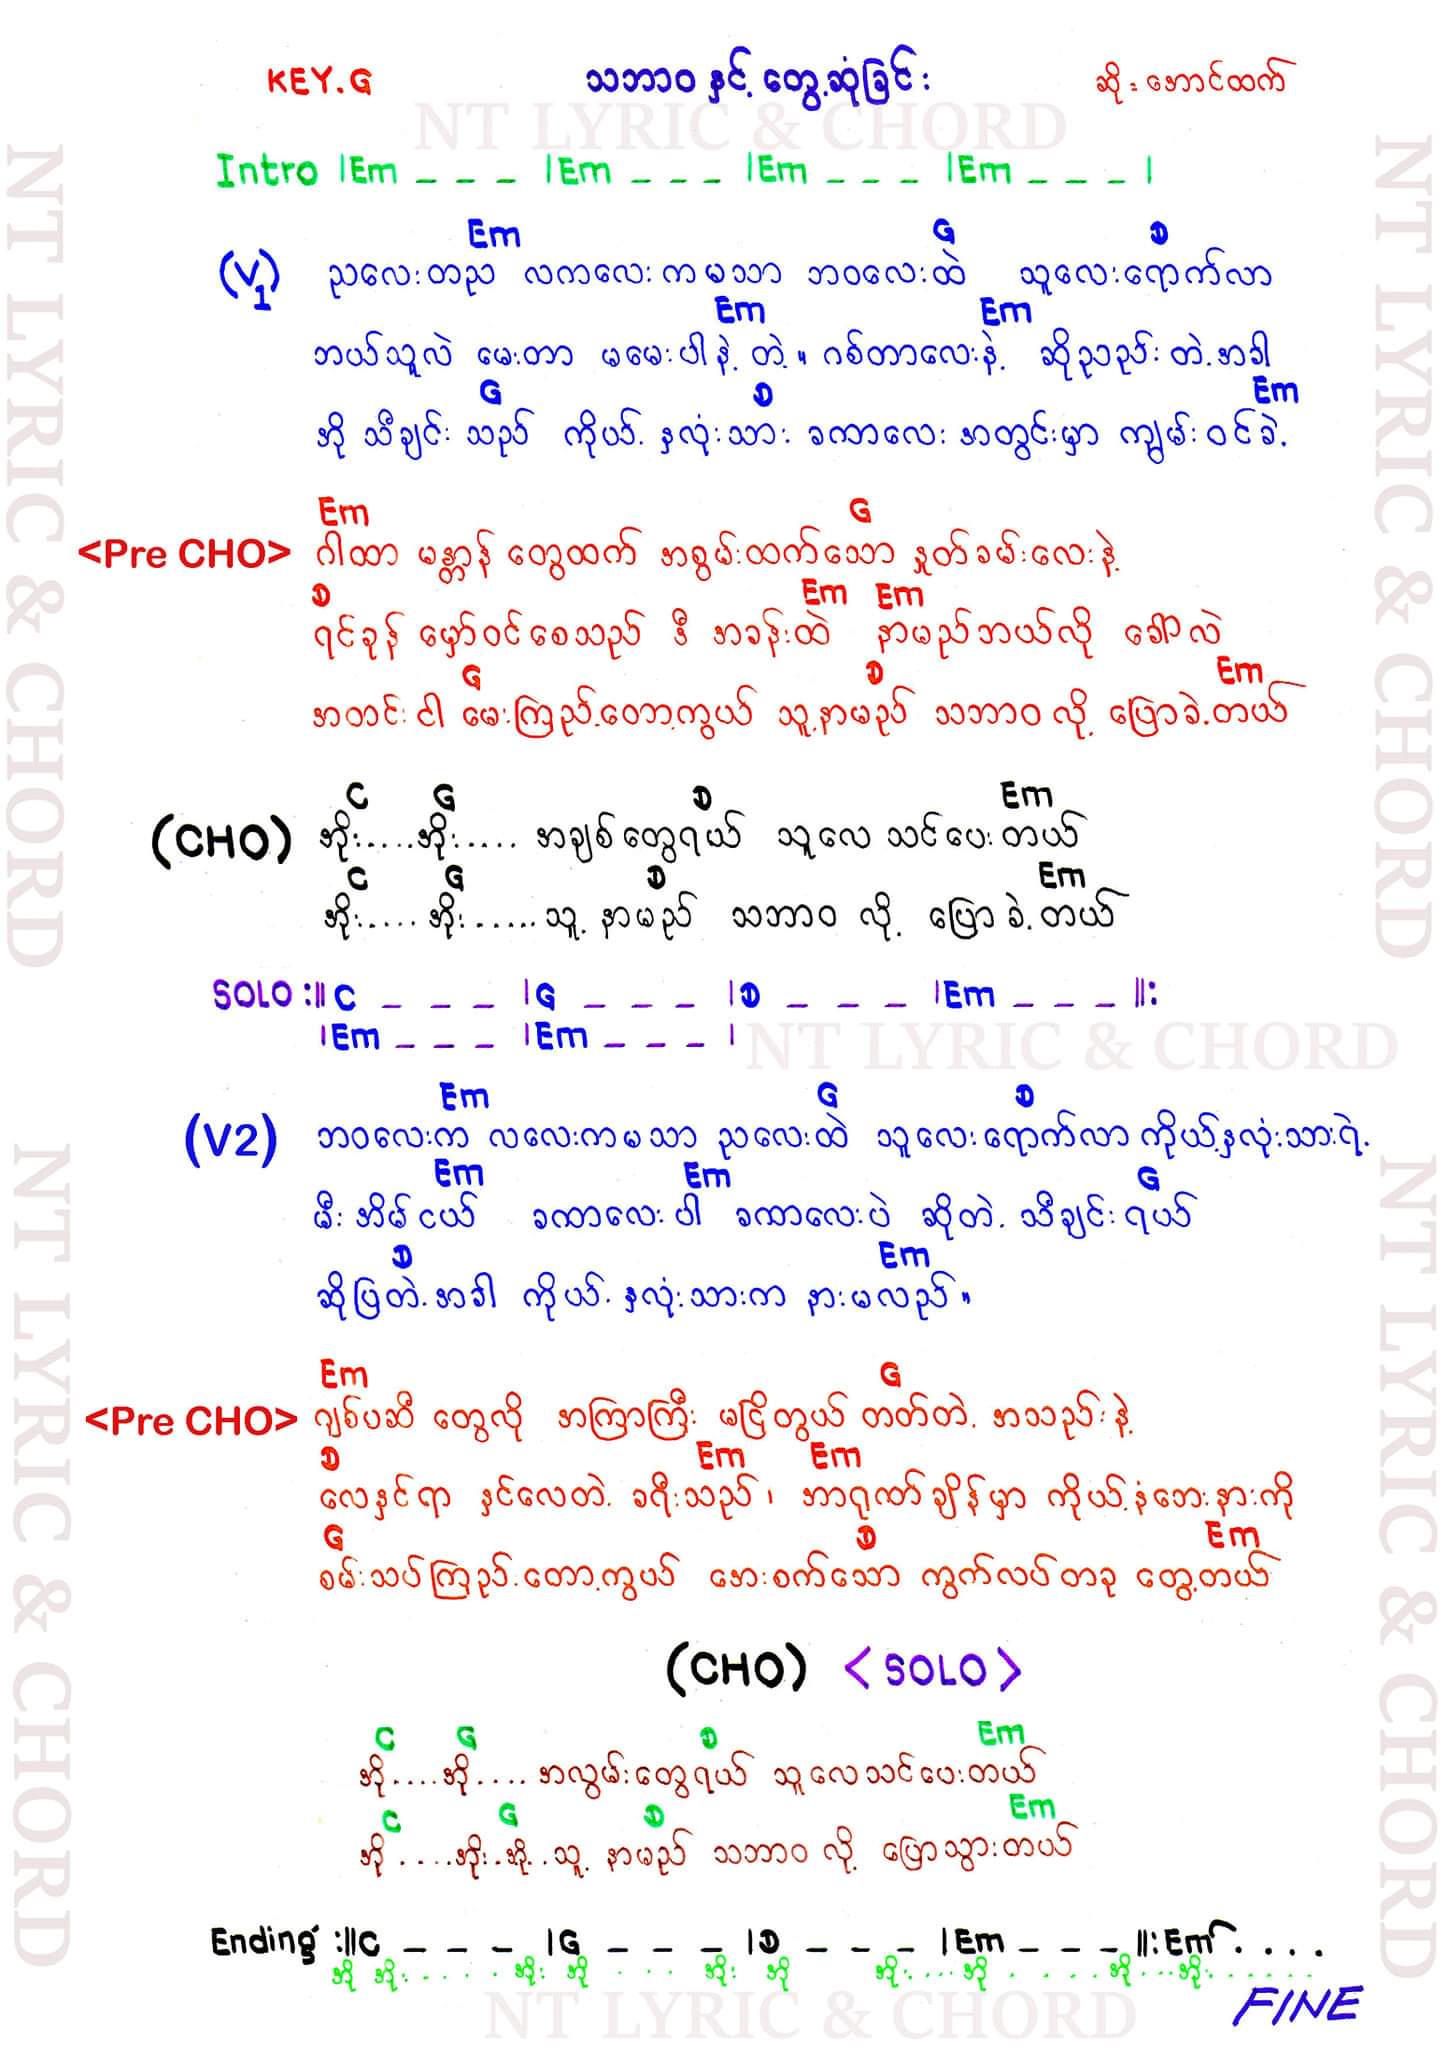 KEY.G သဘာဝ နှင့် တွေ့ဆုံခြင်း ဆို - အောင်ထက်
NT LYRIC & CHORD
Intro |Em _ _ _ |Em _ _ _ |Em _ _ _ |Em _ _ _ |
Em G D
(V1) ညလေးတည လကလေးကမသာ ဘဝလေးထဲ သူလေးရောက်လာ
Em Em
ဘယ်သူလဲ မေးတာ မမေးပါနဲ့ တဲ့။ ဂစ်တာလေးနဲ့ ဆိုညည်းတဲ့အခါ
G D Em
အို သီချင်းသည် ကိုယ့်နှလုံးသား ခဏာလေးအတွင်းမှာ ကျွမ်းဝင်ခဲ့
Em G
<Pre CHO> ဂါထာ မန္တာန်တွေထက် အစွမ်းထက်သော နှုတ်ခမ်းလေးနဲ့
D Em Em
ရင်ခုန် မှော်ဝင်စေသည် ဒီ အခန်းထဲ နာမည်ဘယ်လို ခေါ်လဲ
G D Em
အတင်းငါ မေးကြည့်တော့ကွယ် သူ့နာမည် သဘာဝလို့ ပြောခဲ့တယ်
C G D Em
(CHO) အိုး....အိုး..... အချစ်တွေရယ် သူလေ သင်ပေးတယ်
C G D Em
အိုး..... အိုး......သူ့ နာမည် သဘာဝ လို့ ပြောခဲ့တယ်
SOLO :||C _ _ _ |G _ _ _ |D _ _ _ |Em _ _ _ ||:
|Em _ _ _ |Em _ _ _ |
NT LYRIC & CHORD
Em G D
(V2) ဘဝလေးက လလေးကမသာ ညလေးထဲ သူလေးရောက်လာ ကိုယ့်နှလုံးသားရဲ့
Em Em G
မီးအိမ်ငယ် ခဏာလေးပါ ခဏာလေးပဲ ဆိုတဲ့ သီချင်းရယ်
D Em
ဆိုပြတဲ့အခါ ကိုယ့်နှလုံးသားက နားမလည်။
Em G
<Pre CHO> ဂျစ်ပဆီတွေလို အကြာကြီး မငြိတွယ်တတ်တဲ့ အသည်းနဲ့
D Em Em
လေနှင်ရာ နှင်လေတဲ့ ခရီးသည်၊ အာရုဏ်ချိန်မှာ ကိုယ့်နံဘေးနားကို
G D Em
စမ်းသပ်ကြည့်တော့ကွယ် အေးစက်သော ကွက်လပ်တခု တွေ့တယ်
(CHO) <SOLO>
C G D Em
အို....အို.... အလွမ်းတွေရယ် သူလေသင်ပေးတယ်
C G D Em
အို.....အိုး..အို..သူ့ နာမည် သဘာဝ လို့ ပြောသွားတယ်
Ending :||C _ _ _ |G _ _ _ |D _ _ _ |Em _ _ _ ||:Em....
အို အိုး...... အိုး အို .... အိုး အို အိုး....အို ..... အို...အိုး......
FINE
NT LYRIC & CHORD
NT LYRIC & CHORD
NT LYRIC & CHORD
NT LYRIC & CHORD
NT LYRIC & CHORD